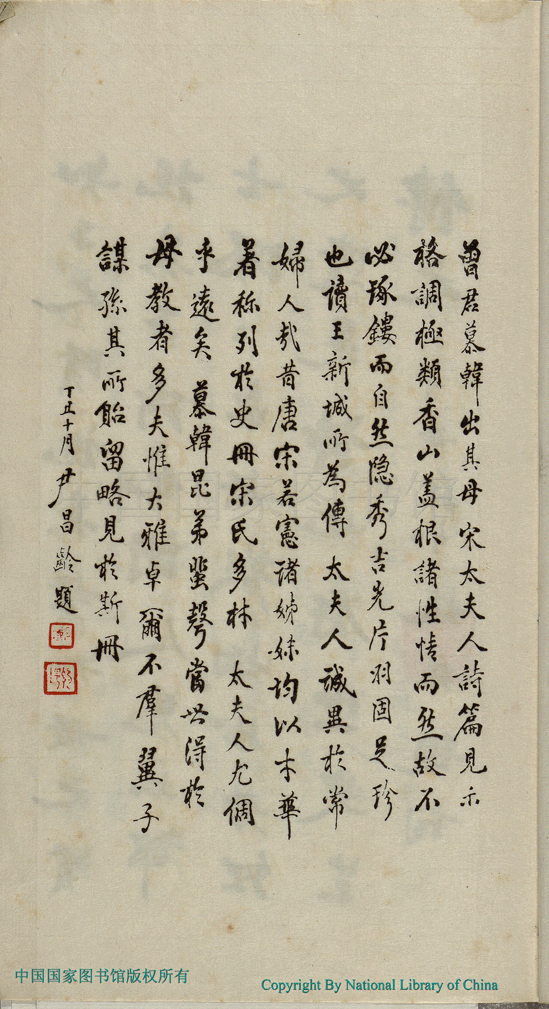 曾君慕韓出其母宋太夫人詩篇見示
格調極類香山蓋根諸性情而然故不
必琢鏤而自然隐秀吉光片羽固足珍
也讀王新城所為傳 太夫人誠異於常
婦人哉昔唐宋若憲諸姊妹均以才華
著称列於史冊宋氏多林 太夫人尤倜
乎遠矣 慕韓昆弟蜚聲當世得於
母教者多夫惟大雅卓爾不羣翼子
謀孫其所貽留略見於斯冊
丁丑十月尹昌齡題
中国国家图书馆版权所有
Copyright By National Library of China